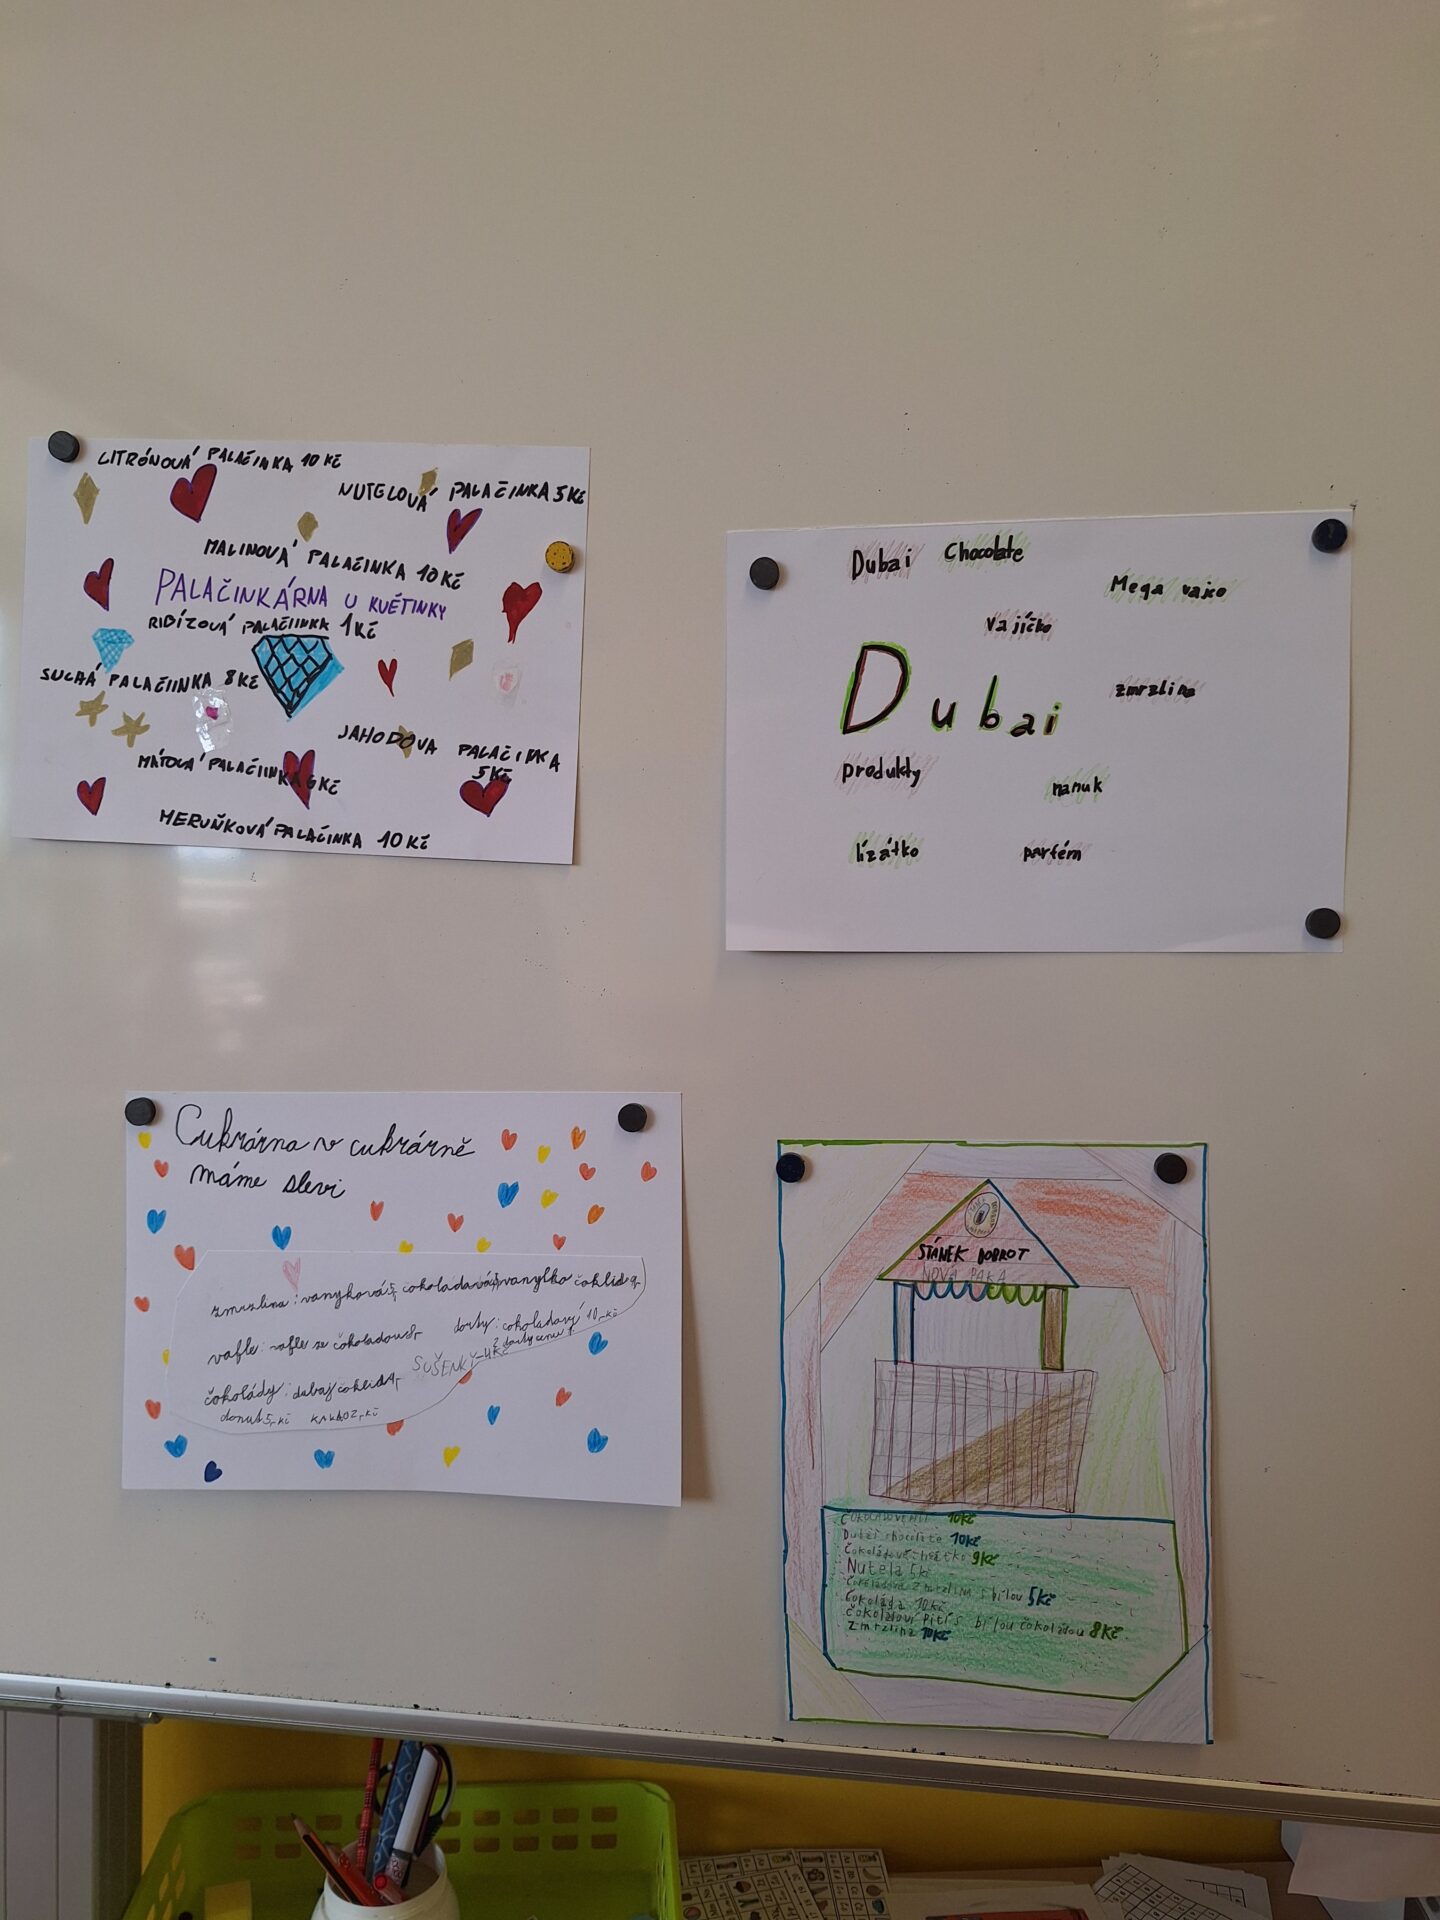 LITRÓNOVÁ PALAČINKA 10 KČ
NUTELOVÁ PALAČINKA 5 KČ
MALINOVÁ PALAČINKA 10 KČ
PALAČINKÁRNA U KVĚTINKY
RIBÍZOVÁ PALAČIINKA 1 KČ
SUCHÁ PALAČIINKA 8 KČ
JAHODOVA PALAČINKA
5 KČ
MÁTOVÁ PALAČIINKA 6 KČ
MERUŇKOVÁ PALAČINKA 10 KČ
Dubai Chocolate
Mega vajco
vajíčko
Dubai
zmrzlina
produkty
nanuk
lízátko
parfém
Cukrárna v cukrárně
máme slevi
zmrzlina: vanyková 5,- čokoladavá vanylko čoklid 9,-
vafle: vafle ze čokoladou 8,-
dorty: čokoladavý 10,-kč
2 dorty cenu 1
SUŠENKY-4KČ
čokolády: dubaj čoklid
donut 5,-kč KAKAO 2,-kč
STÁNEK DOBROT
NOVÁ PAKA
10 KČ
Dubai chocolate 10 KČ
9 KČ
Nutela 5 kč
čokoládová zmrzlina s bílou 5 KČ
čokoláda 10 kč
čokoládoví pití s bílou čokoládou 8 KČ.
zmrzlina 10 KČ